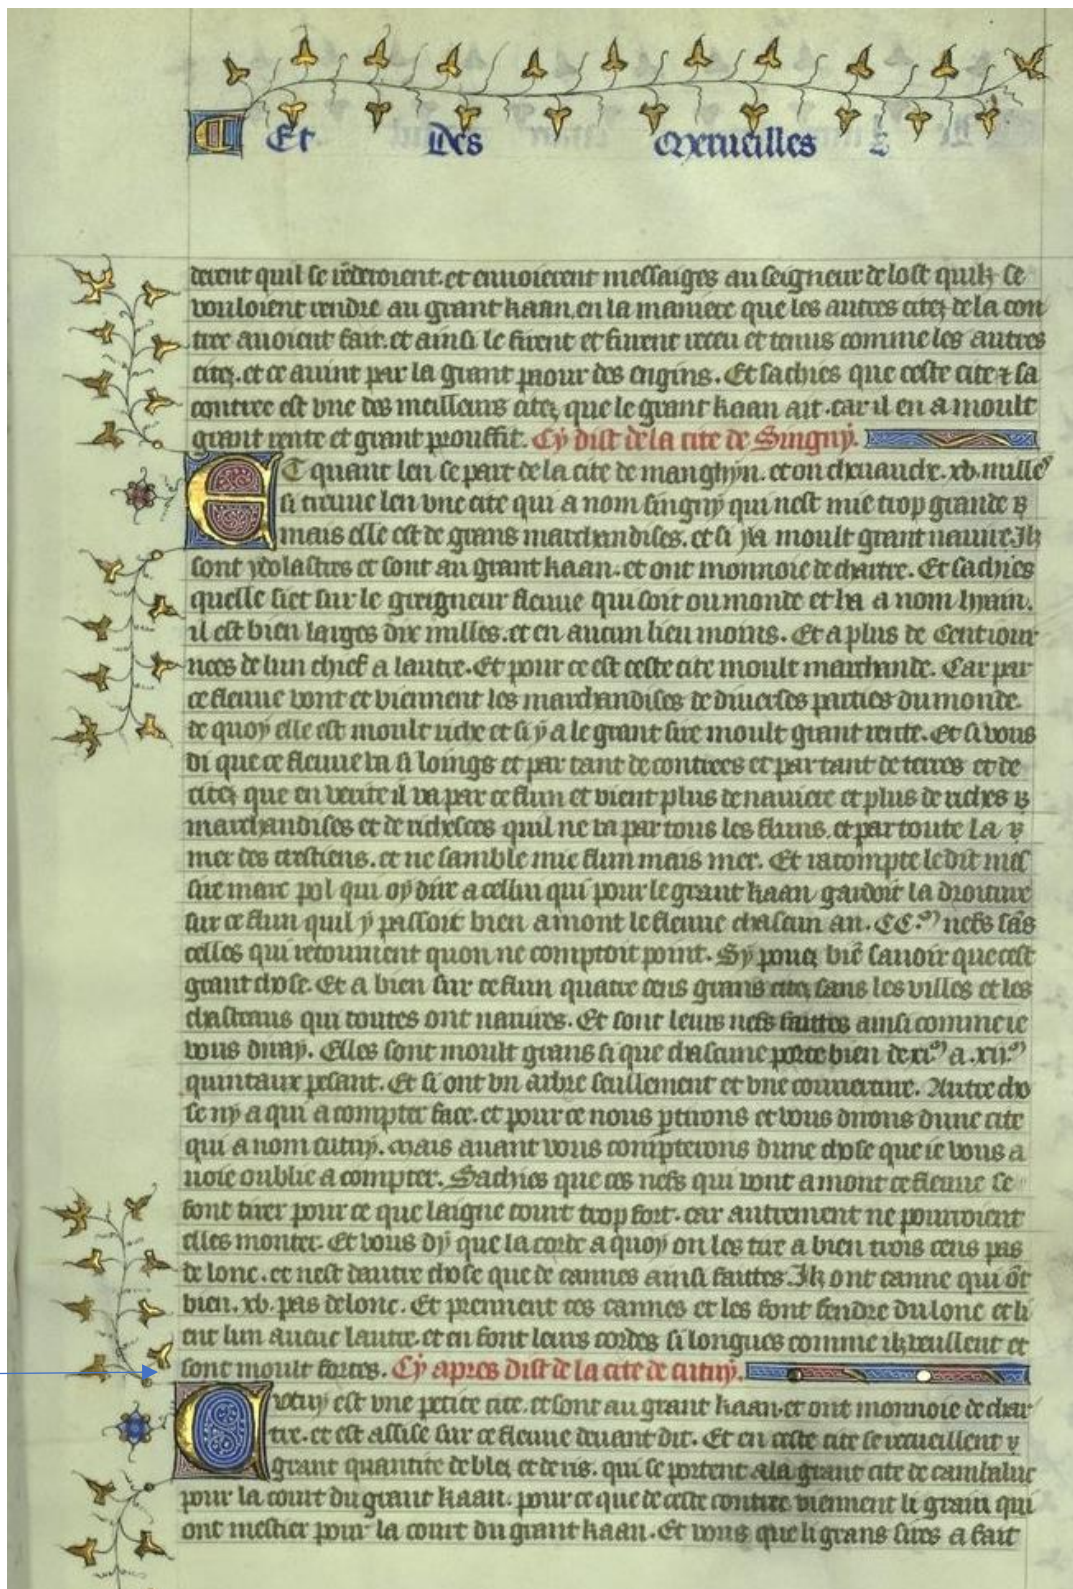 Et Des Merueilles
derent quil se rēderoient. et enuoierent messaiges au seigneur de lost quilz se
vouloient rendre au grant kaan. en la maniere que les autres citez de la con
tree auoient fait. et ainsi le firent et furent receu et tenus comme les autres
citez. et ce auint par la grant paour des engins. Et sachies que ceste cite ⁊ sa
contree est vne des meilleurs citez que le grant kaan ait. car il en a moult
grant rente et grant prouffit. Cy dist de la cite de Singny.
Et quant len se part de la cite de manghyn. et on cheuauche. xv. milles
si treuue len vne cite qui a nom singny qui nest mie trop grande
mais elle est de grans marchandises. et si ya moult grant nauire. Ilz
sont ydolastres et sont au grant kaan. et ont monnoie de chartre. Et sachies
quelle siet sur le greigneur fleuue qui soit ou monde et ha a nom hyam.
il est bien larges dix milles. et en aucun lieu moins. Et a plus de Cent iour
nees de lun chief a lautre. Et pour ce est ceste cite moult marchande. Car par
ce fleuue vont et viennent les marchandises de diuerses parties du monde.
de quoy elle est moult riche et si y a le grant sire moult grant rente. Et si vous
di que ce fleuue va si loings et par tant de contrees et par tant de terres et de
citez que en verite il va par ce flun et vient plus de nauiere et plus de riches
marchandises et de richesces quil ne va par tous les fluns. et par toute la
mer des crestiens. et ne samble mie flun mais mer. Et racompte le dit mes
sire marc pol qui oy dire a cellui qui pour le grant kaan gardoit la droiture
sur ce flun quil y passoit bien amont le fleuue chascun an. CC.m nefs sās
celles qui retournent quon ne comptoit point. Sy pouez biē sauoir que cest
grant chose. Et a bien sur ce flun quatre cens grans citez sans les villes et les
chasteaus qui toutes ont nauires. Et sont leurs nefs faittes ainsi comme ie
vous diray. Elles sont moult grans si que chascune porte bien de xi.m a .xij.m
quintaux pesant. Et si ont vn arbre seullement et vne couuerture. Autre cho
se ny a qui a compter face. et pour ce nous ꝑtirons et vous dirons dune cite
qui a nom cutuy. Mais auant vous compterons dune chose que ie vous a
uoie oublie a compter. Sachies que ces nefs qui vont amont ce fleuue se
font tirer pour ce que laigue court trop fort. car autrement ne pourroient
elles monter. Et vous dy que la corde a quoy on les tire a bien trois cens pas
de lonc. et nest dautre chose que de cannes ainsi faittes. Ilz ont canne qui ōt
bien. xv. pas de lonc. Et prennent ces cannes et les font fendre du lonc et li
ent lun aueuc lautre. et en font leurs cordes si longues comme ilz veullent et
sont moult fortes. Cy apres dist de la cite de cutuy.
Cvtuy est vne petite cite. et sont au grant kaan. et ont monnoie de char
tre. et est assise sur ce fleuue deuant dit. Et en ceste cite se recueillent
grant quantite de blez et de ris. qui se portent a la grant cite de cambaluc
pour la court du grant kaan. pour ce que de ceste contree viennent li grain qui
ont mestier pour la court du grant kaan. Et vous que li grans sires a fait